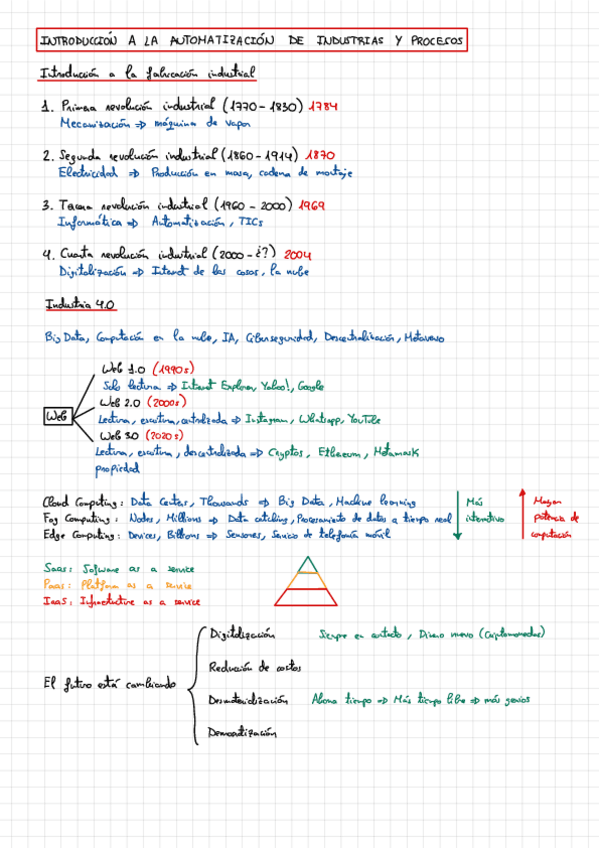 INTRODUCCIÓN A LA AUTOMATIZACIÓN DE INDUSTRIAS Y PROCESOS
Introducción a la fabricación industrial
1. Primera revolución industrial (1770 - 1830) 1784
Mecanización => máquina de vapor
2. Segunda revolución industrial (1860 - 1914) 1870
Electricidad => Producción en masa, cadena de montaje
3. Tercera revolución industrial (1960 - 2000) 1969
Informática => Automatización, TICs
4. Cuarta revolución industrial (2000 - ¿?) 2004
Digitalización => Internet de las cosas, la nube
Industria 4.0
Big Data, Computación en la nube, IA, Ciberseguridad, Descentralización, Metaverso
Web
Web 1.0 (1990s)
Solo lectura => Internet Explorer, Yahoo!, Google
Web 2.0 (2000s)
Lectura, escritura, centralizada => Instagram, Whatsapp, YouTube
Web 3.0 (2020s)
Lectura, escritura, descentralizada => Cryptos, Ethereum, Metamask
propiedad
Cloud Computing: Data Centers, Thousands => Big Data, Machine learning
Fog Computing: Nodes, Millions => Data catching, Procesamiento de datos a tiempo real
Edge Computing: Devices, Billions => Sensores, Servicio de telefonía móvil
Más
interactivo
Mayor
potencia de
computación
SaaS: Software as a service
PaaS: Platform as a service
IaaS: Infraestructure as a service
El futuro está cambiando
Digitalización Siempre en contacto, Dinero nuevo (Criptomonedas)
Reducción de costos
Desmaterialización Ahorra tiempo => Más tiempo libre => más genios
Democratización